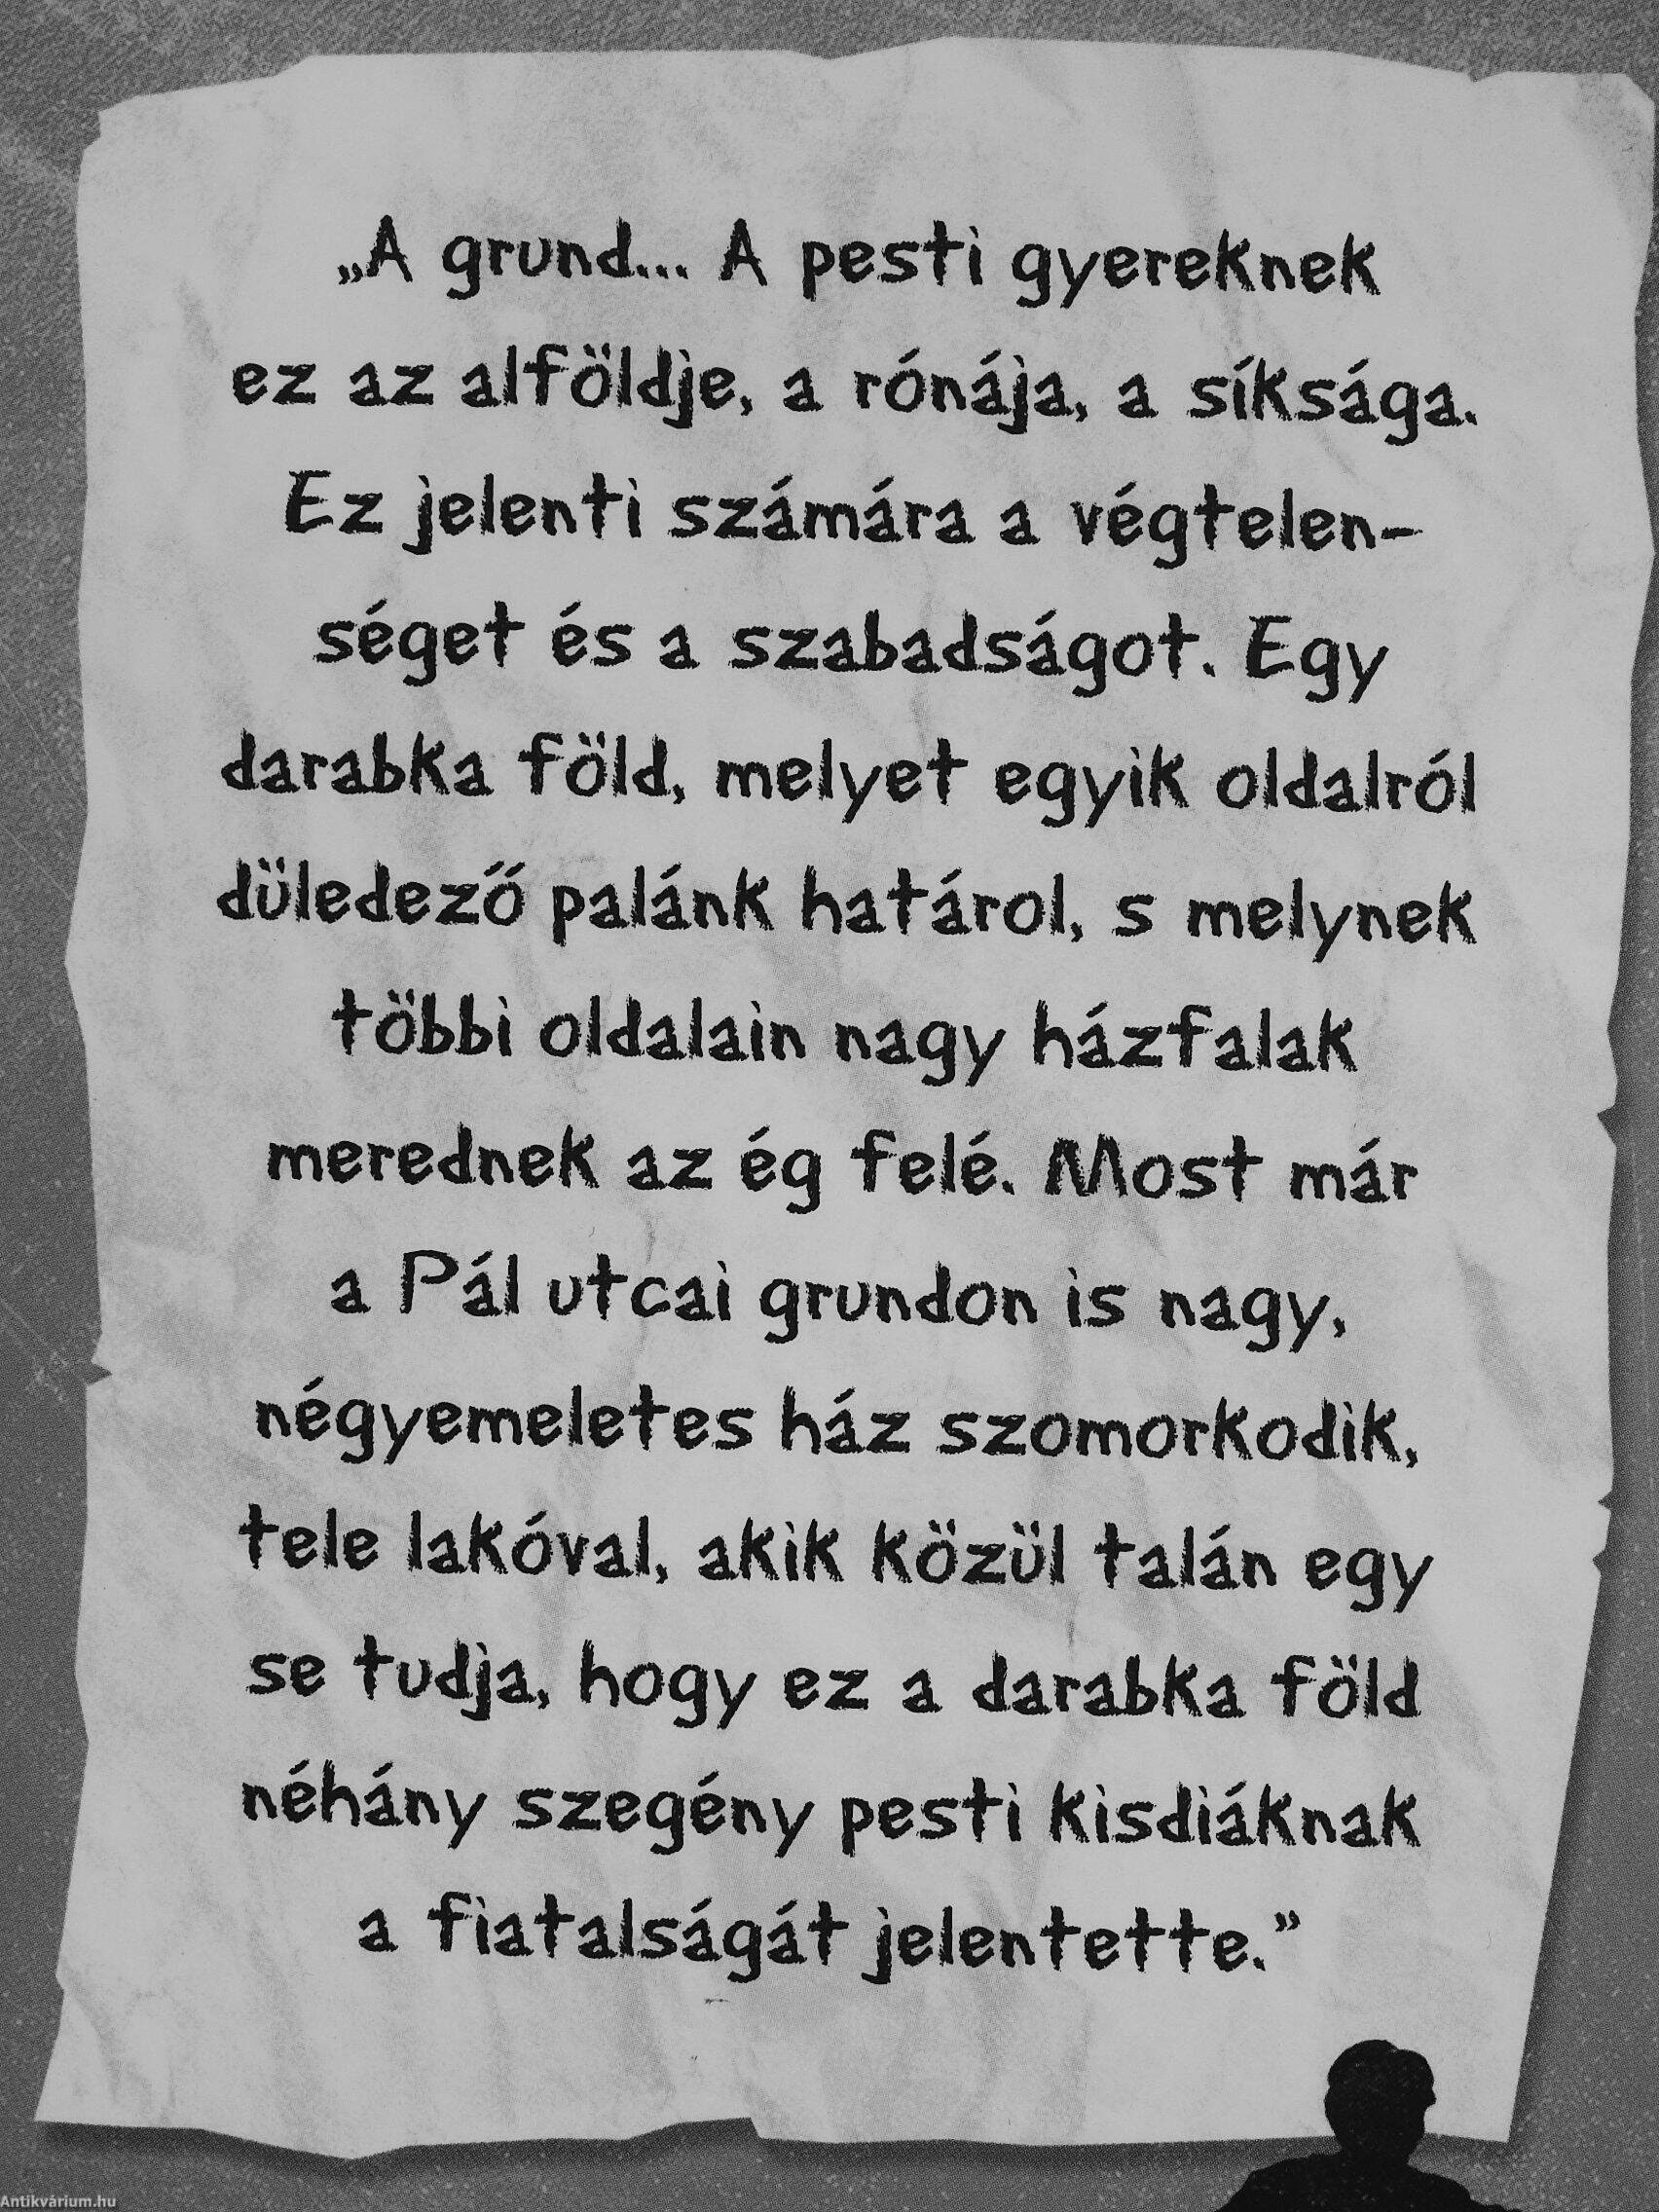 „A grund... A pesti gyereknek
ez az alföldje, a rónája, a síksága.
Ez jelenti számára a végtelen-
séget és a szabadságot. Egy
darabka föld, melyet egyik oldalról
düledező palánk határol, s melynek
többi oldalain nagy házfalak
merednek az ég felé. Most már
a Pál utcai grundon is nagy,
négyemeletes ház szomorkodik,
tele lakóval, akik közül talán egy
se tudja, hogy ez a darabka föld
néhány szegény pesti kisdiáknak
a fiatalságát jelentette.”
Antikvárium.hu